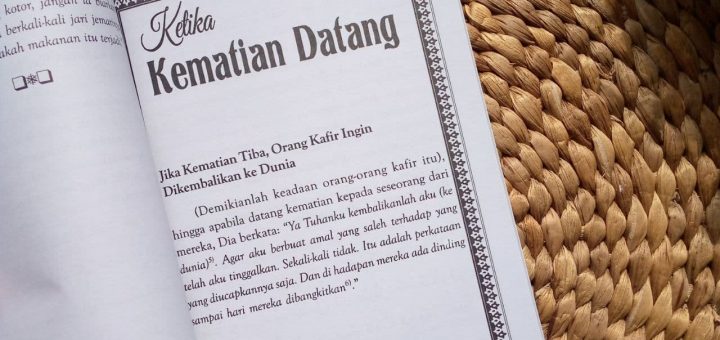 kotor, jangan ia
berkali-kali jari
makanan itu
❑❉❑
Ketika
Kematian Datang
Jika Kematian Tiba, Orang Kafir Ingin
Dikembalikan ke Dunia
(Demikianlah keadaan orang-orang kafir itu),
hingga apabila datang kematian kepada seseorang dari
mereka, Dia berkata: "Ya Tuhanku kembalikanlah aku (ke
dunia)⁵⁾. Agar aku berbuat amal yang saleh terhadap yang
telah aku tinggalkan. Sekali-kali tidak. Itu adalah perkataan
yang diucapkannya saja. Dan di hadapan mereka ada dinding
sampai hari mereka dibangkitkan⁶⁾."